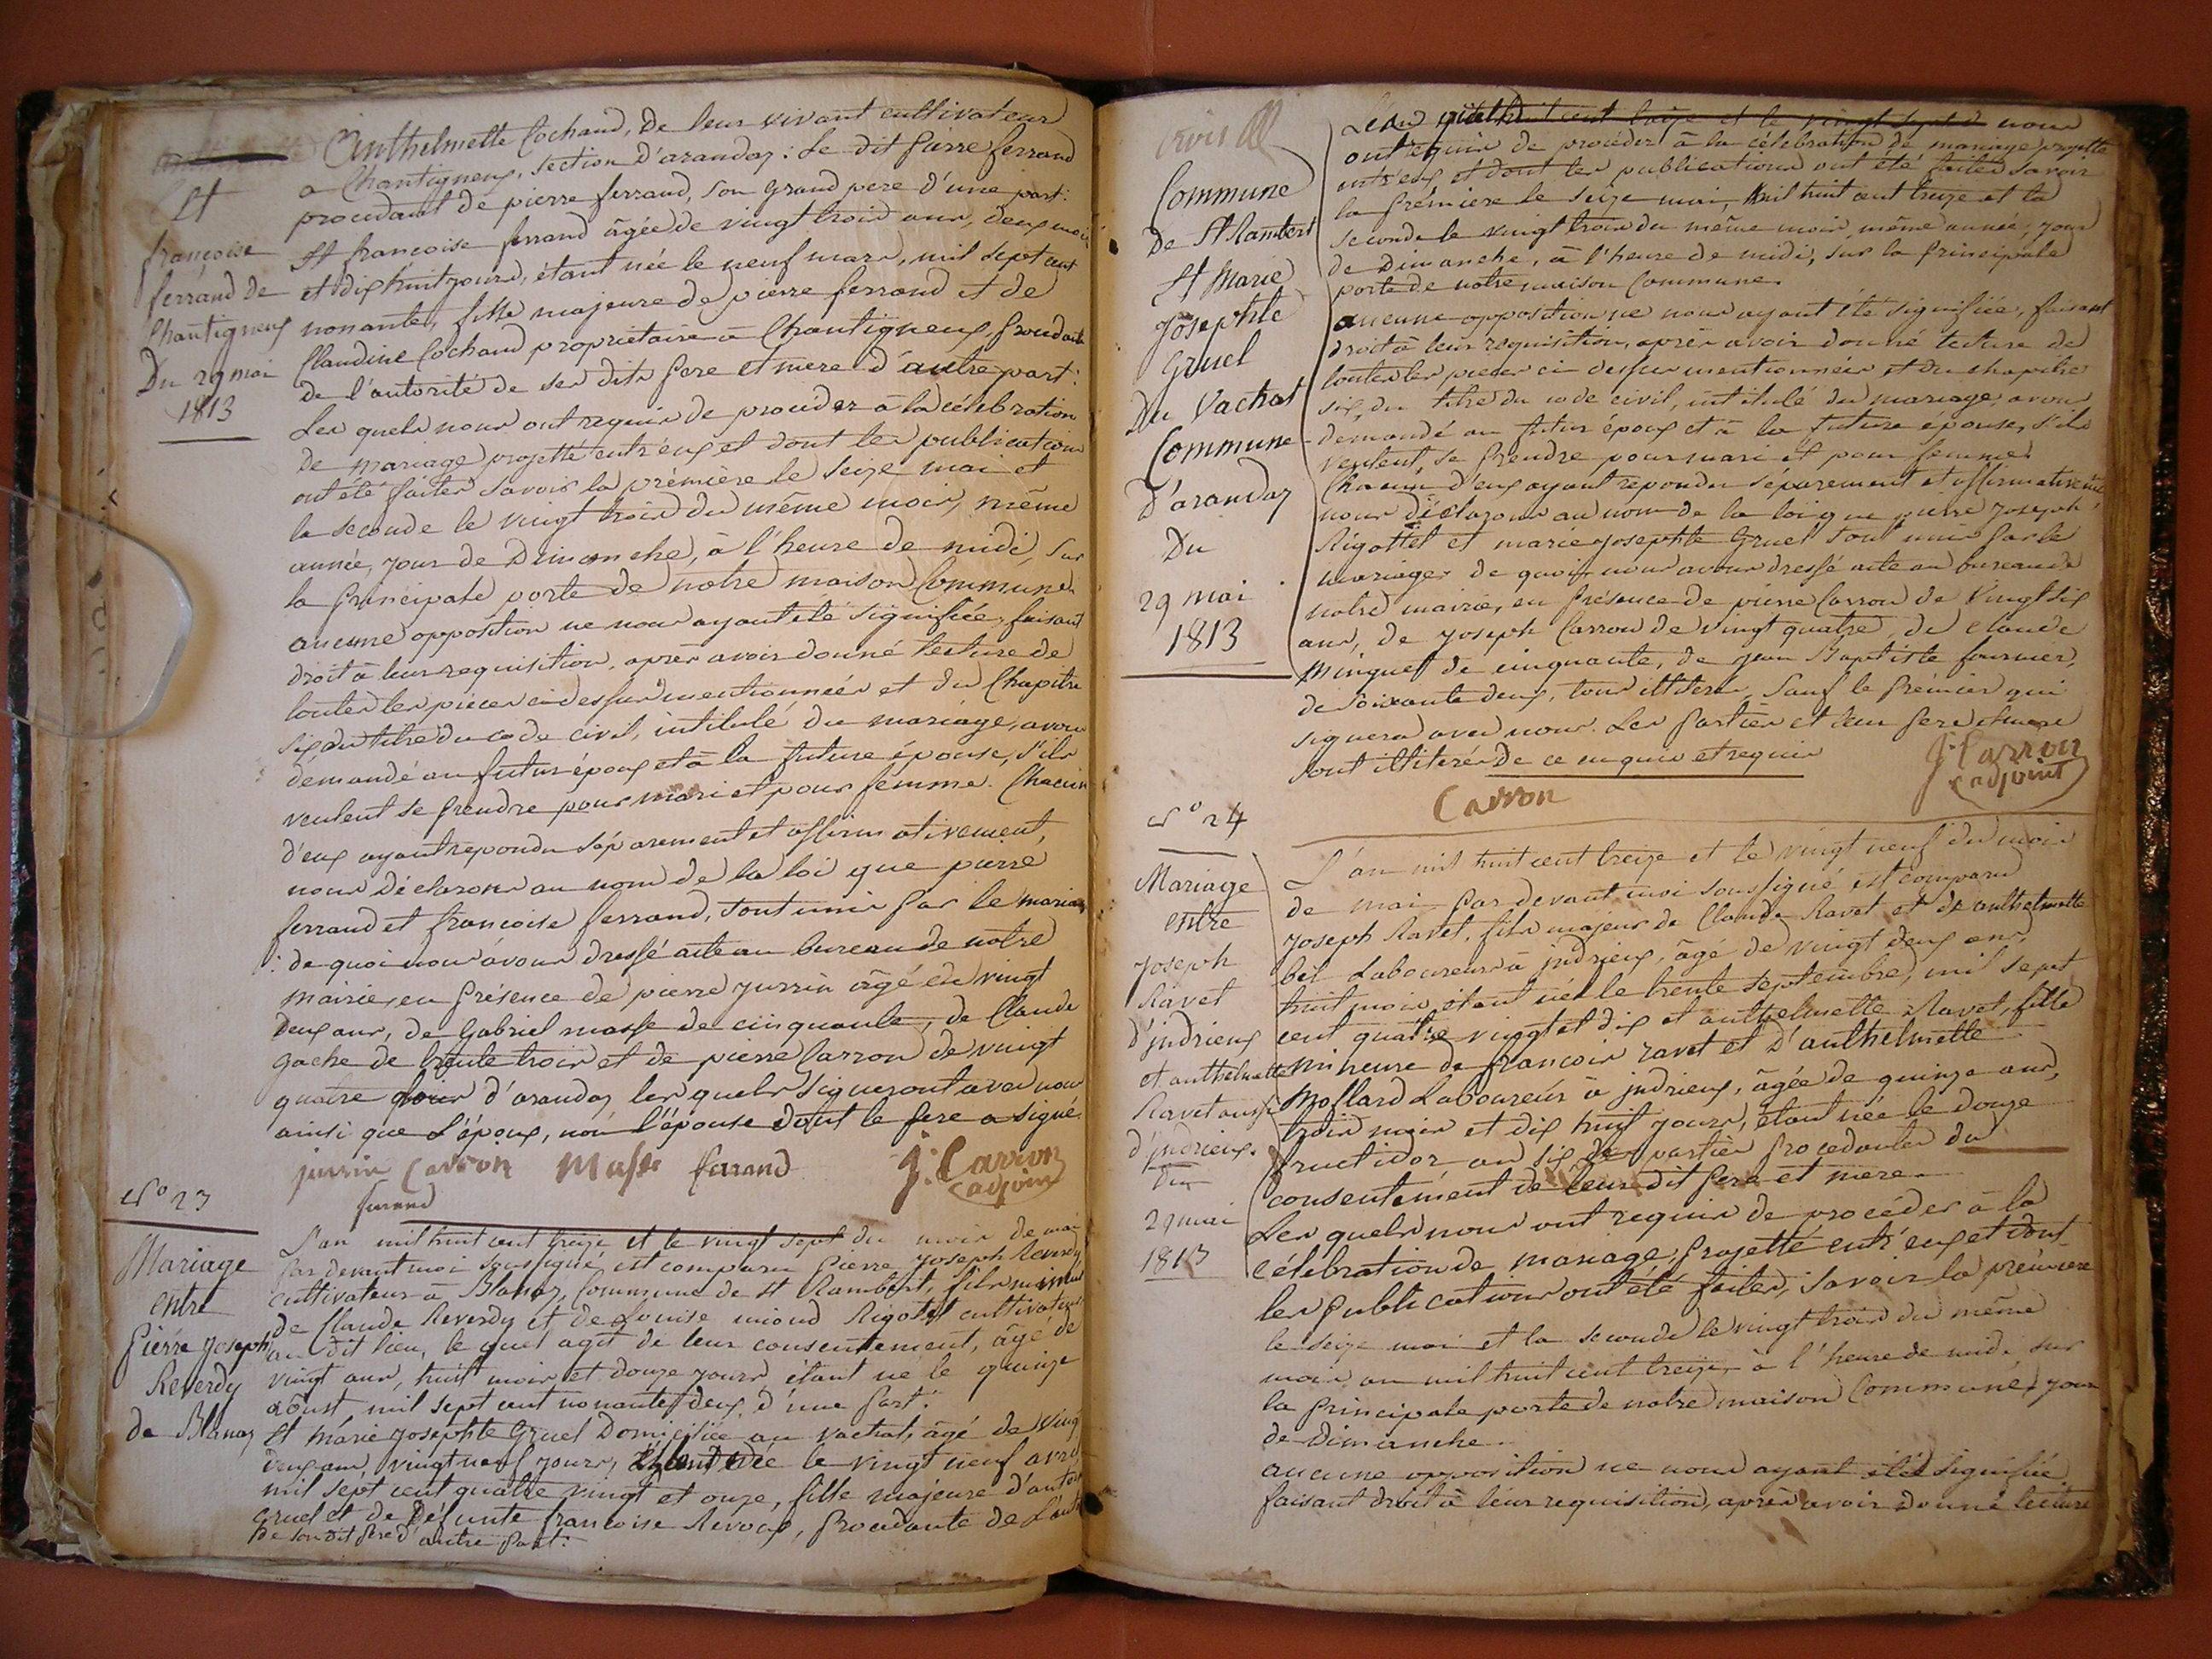 Et
françoise
ferrand de
Chantigneux
Du 29 mai
1813
Anthelmette Cochand, de leur vivant cultivateur
a Chantigneux, section d'arandaz: Le dit pierre ferrand
procedant de pierre ferrand, son grand pere d'une part:
Et francoise ferrand âgée de vingt trois ans, deux mois
et dix huit jours, étant née le neuf mars, mil sept cent
nonante, fille majeure de pierre ferrand et de
Claudine Cochand proprietaire à Chantigneux, procedante
de l'autorité de ses dits pere et mere d'autre part:
Les quels nous ont requis de proceder à la célebration
de mariage projetté entr'eux et dont les publications
ont été faites savoir la prémière le seize mai et
la seconde le vingt trois du même mois, même
année, jour de Dimanche, à l'heure de midi, sur
la principale porte de notre maison Commune.
aucune opposition ne nous ayant été signifiée, faisant
droit à leur requisition, après avoir donné lecture de
toutes les pièces ci dessus mentionnées et du Chapitre
six, du titre du code civil, intitulé du mariage, avons
demandé au futur époux et à la future épouse, s'ils
veulent se prendre pour mari et pour femme. Chacun
d'eux ayant repondu séparement et affirmativement,
nous déclarons au nom de la loi que pierre
ferrand et francoise ferrand, sont unis par le mariage
: de quoi nous avons dressé acte au bureau de notre
mairie, en présence de pierre jurrin âgé de vingt
deux ans, de Gabriel masse de cinquante, de Claude
gache de trente trois et de pierre Carron de vingt
quatre d'arandaz les quels signeront avec nous
ainsi que l'époux, non l'épouse dont le pere a signé
jurrin Carron Masse farand J. Carron
adjoint
ferrand
N° 23
Mariage
entre
Pierre Joseph
Reverdy
de Blanaz
L'an mil huit cent treize et le vingt sept du mois de mai
par devant moi soussigné est comparu Pierre Joseph Reverdy
cultivateur à Blanaz, Commune de st Rambert, fils mineur
de Claude Reverdy et de Louise miond Rigotet cultivateurs
au dit lieu, le quel agit de leur consentement, âgé de
vingt ans, huit mois et douze jours étant né le quinze
aôust mil sept cent nonante deux d'une part:
Et marie josephte Gruel Domiciliée au vachat, âgé de vingt
deux ans, vingt neuf jours, étant née le vingt neuf avril
mil sept cent quatre vingt et onze, fille majeure d'antoine
gruel et de défunte francoise Revoux, procedante de l'aut
de son dit pere d'autre part:
Commune
De St Rambert
Et Marie
Josephte
Gruel
du Vachat
Commune
D'arandaz
Du
29 mai
1813
nous
ont requis de procéder à la célebration de mariage projetté
entr'eux et dont les publications ont été faites savoir
la prémiere le seize mai, mil huit cent treize et la
seconde le vingt trois du même mois, même année, jour
de Dimanche, à l'heure de midi, sur la principale
porte de notre maison Commune.
aucune opposition ne nous ayant été signifiée, faisant
droit à leur requisition, après avoir donné lecture de
toutes les pieces ci dessus mentionnées et du chapitre
six, du titre du code civil, intitulé du mariage, avons
demandé au futur époux et à la future épouse, s'ils
veulent, se prendre pour mari et pour femme.
Chacun d'eux ayant repondu séparement et affirmativement
nous déclarons au nom de la loi que pierre joseph
Rigottet et marie josephte Gruel sont unis par le
mariage: de quoi nous avons dressé acte au bureau de
notre mairie, en présence de pierre Carron de vingt six
ans, de joseph Carron de vingt quatre, de claude
Minguet de cinquante, de jean Baptiste fournier,
de soixante deux, tous illiteres, sauf le prémier qui
signera avec nous. Les parties et leur pere et mere
sont illiterés de ce enquis et requis
J. Carron
adjoint
Carron
N° 24
Mariage
entre
Joseph
Ravet
d'indrieux
et anthelmette
Ravet aussi
d'indrieux.
Du
29 mai
1813
L'an mil huit cent treize et le vingt neuf du mois
de mai par devant moi soussigné est comparu
joseph Ravet, fils majeur de Claude Ravet et de anthelmette
bel Laboureurs à indrieux, âgé de vingt deux ans,
huit mois, étant né le trente septembre, mil sept
cent quatre vingt et dix et anthelmette Ravet, fille
mineure de francois ravet et d'anthelmette
Mollard Laboureurs à indrieux, âgée de quinze ans,
trois mois et dix huit jours, étant née le douze
fructidor an six, les parties procedantes du
consentement de leur dit pere et mere.
Les quels nous ont requis de procéder à la
célebration de mariage, projetté entr'eux et dont
les publications ont été faites, savoir la prémiere
le seize mai et la seconde le vingt trois du même
mois an mil huit cent treize, à l'heure de midi sur
la principale porte de notre maison Commune, jour
de Dimanche.
aucune opposition ne nous ayant été signifiée,
faisant droit à leur requisition, après avoir donné lecture